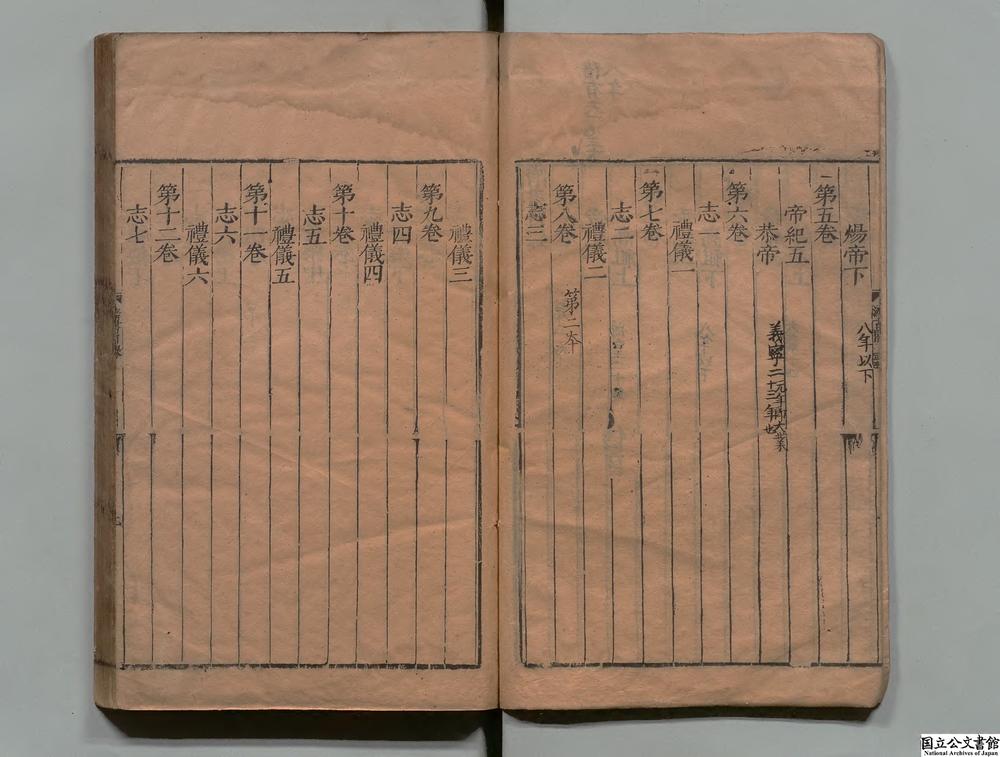 煬帝下 八年以下
第五卷
帝紀五
恭帝 義寧二
第六卷
志一
禮儀一
第七卷
志二
禮儀二
第八卷 第二本
志三
禮儀三
第九卷
志四
禮儀四
第十卷
志五
禮儀五
第十一卷
志六
禮儀六
第十二卷
志七
国立公文書館
National Archives of Japan